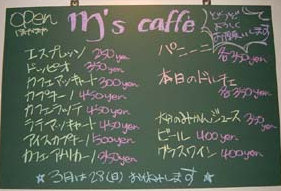 open
m's caffé
エスプレッソ 250yen
ドッピオ 350yen
カフェマッキャート 300yen
カプチーノ 450yen
カフェラッテ 450yen
ラテマッキャート 450yen
アイスカプチーノ 500yen
カフェアメリカーノ 350yen
パニーニ
各350yen
本日のドルチェ
各350yen
みかんジュース 350yen
ビール 400yen
グラスワイン 400yen
☆ 3月は28(日) お休みします ☆